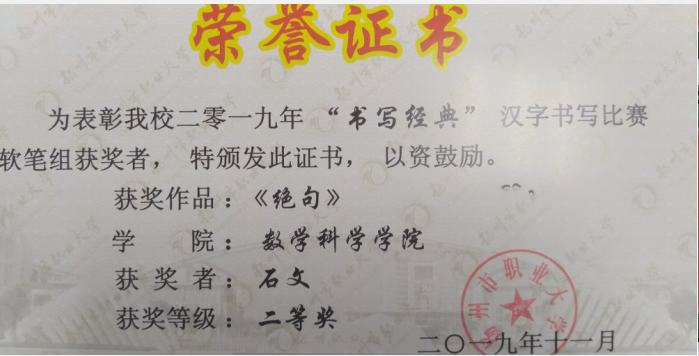 荣誉证书
为表彰我校二零一九年“书写经典”汉字书写比赛
软笔组获奖者，特颁发此证书，以资鼓励。
获奖作品：《绝句》
学 院：数学科学学院
获 奖 者：石文
获奖等级：二等奖
州市职业大学
二〇一九年十一月